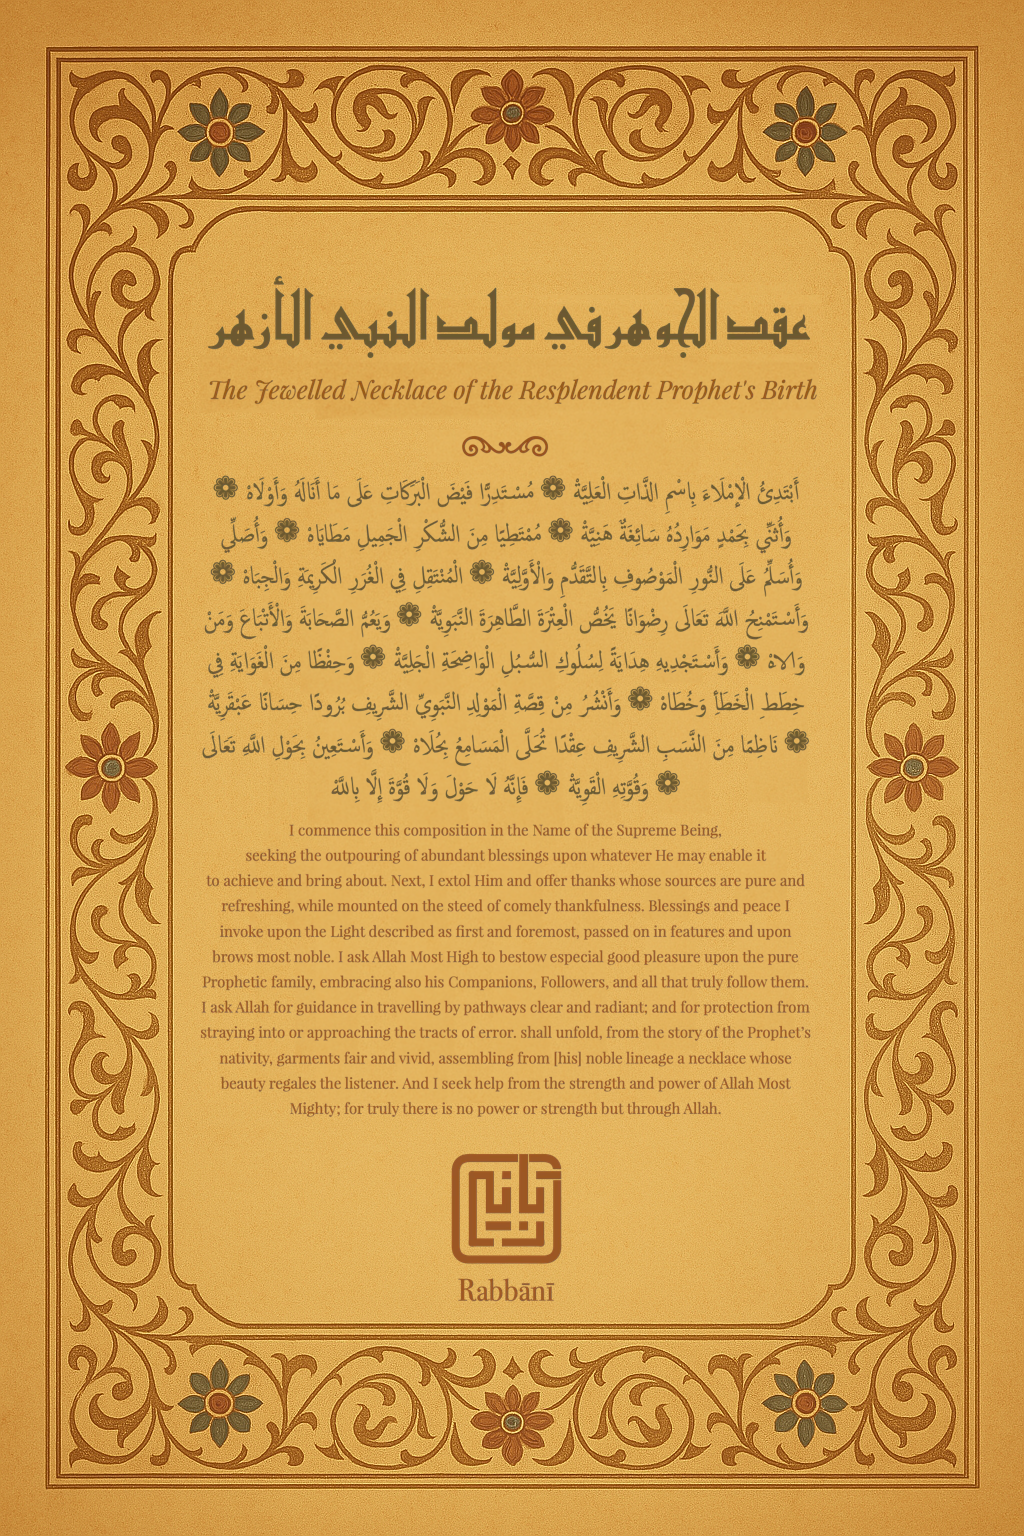 عقد الجوهر في مولد النبي الأزهر
The Jewelled Necklace of the Resplendent Prophet's Birth
أَبْتَدِئُ الْإِمْلَاءَ بِاسْمِ الذَّاتِ الْعَلِيَّةْ ۞ مُسْتَدِرًّا فَيْضَ الْبَرَكَاتِ عَلَى مَا أَنَالَهُ وَأَوْلَاهْ ۞
وَأُثَنِّي بِحَمْدٍ مَوَارِدُهُ سَائِغَةٌ هَنِيَّةْ ۞ مُمْتَطِيًا مِنَ الشُّكْرِ الْجَمِيلِ مَطَايَاهْ ۞ وَأُصَلِّي
وَأُسَلِّمُ عَلَى النُّورِ الْمَوْصُوفِ بِالتَّقَدُّمِ وَالْأَوَّلِيَّةْ ۞ الْمُنْتَقِلِ فِي الْغُرَرِ الْكَرِيمَةِ وَالْجِبَاهْ ۞
وَأَسْتَمْنِحُ اللَّهَ تَعَالَى رِضْوَانًا يَخُصُّ الْعِتْرَةَ الطَّاهِرَةَ النَّبَوِيَّةْ ۞ وَيَعُمُّ الصَّحَابَةَ وَالْأَتْبَاعَ وَمَنْ
وَالاهْ ۞ وَأَسْتَجْدِيهِ هِدَايَةً لِسُلُوكِ السُّبُلِ الْوَاضِحَةِ الْجَلِيَّةْ ۞ وَحِفْظًا مِنَ الْغَوَايَةِ فِي
خِطَطِ الْخَطَأِ وَخُطَاهْ ۞ وَأَنْشُرُ مِنْ قِصَّةِ الْمَوْلِدِ النَّبَوِيِّ الشَّرِيفِ بُرُودًا حِسَانًا عَبْقَرِيَّةْ
۞ نَاظِمًا مِنَ النَّسَبِ الشَّرِيفِ عِقْدًا تُحَلَّى الْمَسَامِعُ بِحُلَاهْ ۞ وَأَسْتَعِينُ بِحَوْلِ اللَّهِ تَعَالَى
۞ وَقُوَّتِهِ الْقَوِيَّةْ ۞ فَإِنَّهُ لَا حَوْلَ وَلَا قُوَّةَ إِلَّا بِاللَّهْ
I commence this composition in the Name of the Supreme Being,
seeking the outpouring of abundant blessings upon whatever He may enable it
to achieve and bring about. Next, I extol Him and offer thanks whose sources are pure and
refreshing, while mounted on the steed of comely thankfulness. Blessings and peace I
invoke upon the Light described as first and foremost, passed on in features and upon
brows most noble. I ask Allah Most High to bestow especial good pleasure upon the pure
Prophetic family, embracing also his Companions, Followers, and all that truly follow them.
I ask Allah for guidance in travelling by pathways clear and radiant; and for protection from
straying into or approaching the tracts of error. shall unfold, from the story of the Prophet's
nativity, garments fair and vivid, assembling from [his] noble lineage a necklace whose
beauty regales the listener. And I seek help from the strength and power of Allah Most
Mighty; for truly there is no power or strength but through Allah.
Rabbānī